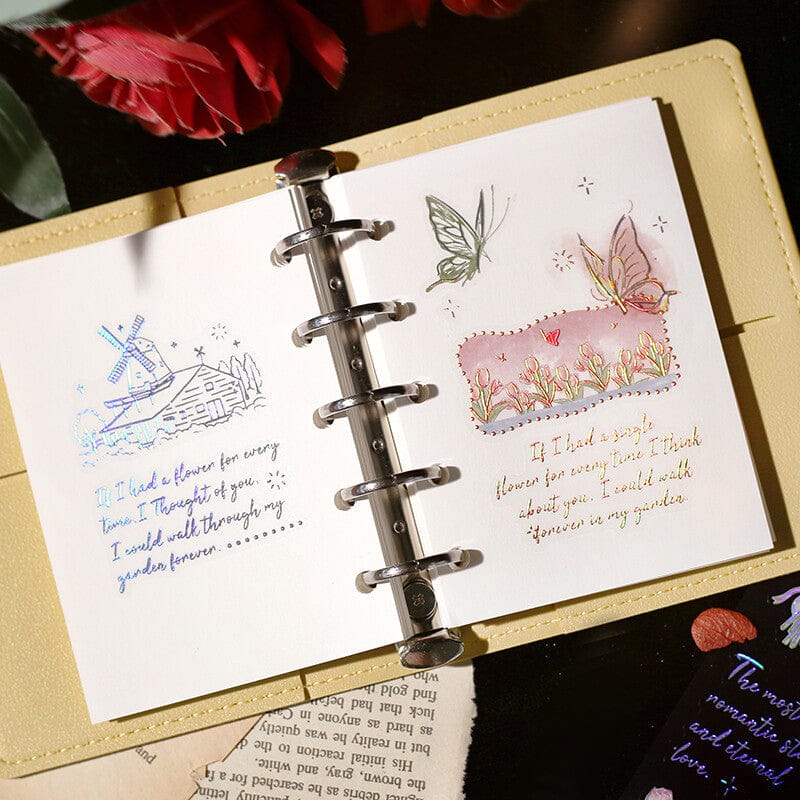 If I had a flower for every
time, I Thought of you.
I could walk through my
garden forever. .........
If I had a single
flower for every time I think
about you, I could walk
forever in my garden.
The most
romantic
and eternal
love.
debris as he searched for a
the brown, gray, and white.
His initial reaction to the
but in reality he was quietly
as hard as anyone in
luck that had
find gold
who
and